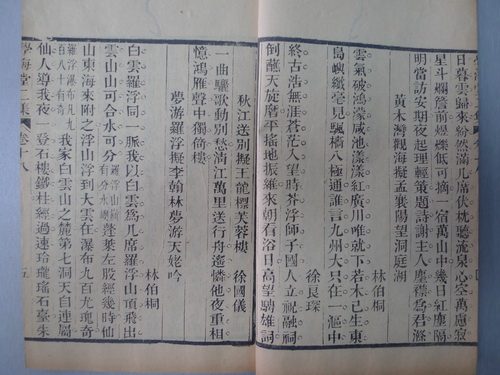 日暮雲歸來紛然滿几席伏枕聽流泉心空萬慮寂
星斗爛簷前煙機低可摘一宿萬山中幾日紅塵隔
明當訪安期夜起理輕策題詩謝主人塵襟為君滌
黃木灣觀海擬孟襄陽望洞庭湖
林伯桐
雲氣破鴻濛咸池漾漾紅廣川唯就下若木已生東
島嶼纖毫見颿檣八極通誰言九州大只在一漚中
徐良琛
終古浩無涯蒼茫入望時芥浮師子國人立祝融祠
倒蘸天旋磨平搖地振維來朝看浴日高望雄詞
秋江送別擬王龍標芙蓉樓 徐國儀
一曲驪歌動別愁清江萬里送行舟遙憐他夜重相
憶鴻雁聲中獨倚樓
夢游羅浮擬李翰林夢游天姥吟
林伯桐
白雲羅浮同一脈我以白雲為几席羅浮山頂飛出
雲山山可合水可分羅浮山有分水蓬萊左股經幾時仙
山東海來附之浮山浮到大雲在瀑布九百尤瑰奇
羅浮瀑布九百八十有奇我家白雲山之麓第七洞天自連屬
仙人導我夜一登石樓鐵柱經過速玲瓏瑤石臺朱
學海堂二集 卷十八 五